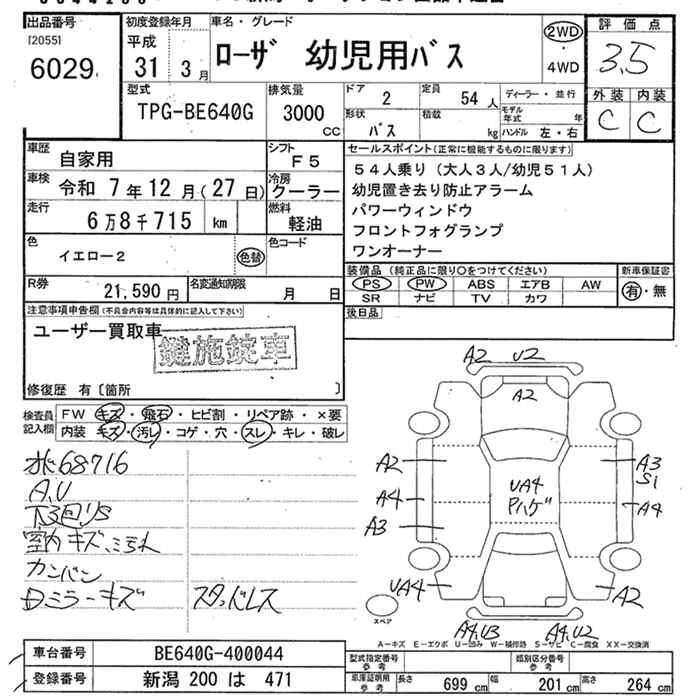 出品番号 [2055] 6029
初度登録年月 平成 31 3月
車名・グレード ローザ 幼児用バス
2WD ・ 4WD
評価点 3.5
外装 内装
C C
型式 TPG-BE640G
排気量 3000 cc
ドア 2
定員 54人
ディーラー・並行
形状 バス
積載 kg
モデル年式 年
ハンドル 左・右
車歴 自家用
シフト F5
車検 令和 7年12月(27日)
冷房 クーラー
走行 6万8千715 km
燃料 軽油
色 イエロー2
色替
色コード
R券 21,590円
名変通知期限 月 日
セールスポイント(正常に機能するものに限ります)
54人乗り(大人3人/幼児51人)
幼児置き去り防止アラーム
パワーウィンドウ
フロントフォグランプ
ワンオーナー
装備品(純正品に限り○をつけてください)
PS PW ABS エアB AW
SR ナビ TV カワ
新車保証書
有・無
後日品
注意事項申告欄(不具合内容等は具体的に記入して下さい)
ユーザー買取車
鍵施錠車
修復歴 有〔箇所 〕
検査員記入欄
FW キズ・飛石・ヒビ割・リペア跡・×要
内装 キズ・汚レ・コゲ・穴・スレ・キレ・破レ
68716
A,U
下回りS
室内キズ、こぎれ
カンバン
Dミラーキズ
スタッドレス
A2 U2
A2
A2
A3
S1
A4
UA4
Pハゲ
A4
A3
UA4
A2
スペア
A4,U3 A4,U2
A-キズ E-エクボ U-凹み W-補修跡 S-サビ C-腐食 XX-交換済
車台番号 BE640G-400044
登録番号 新潟 200 は 471
型式指定番号 参考
類別区分番号 参考
車庫証明用 参考
長さ 699 cm
幅 201 cm
高さ 264 cm